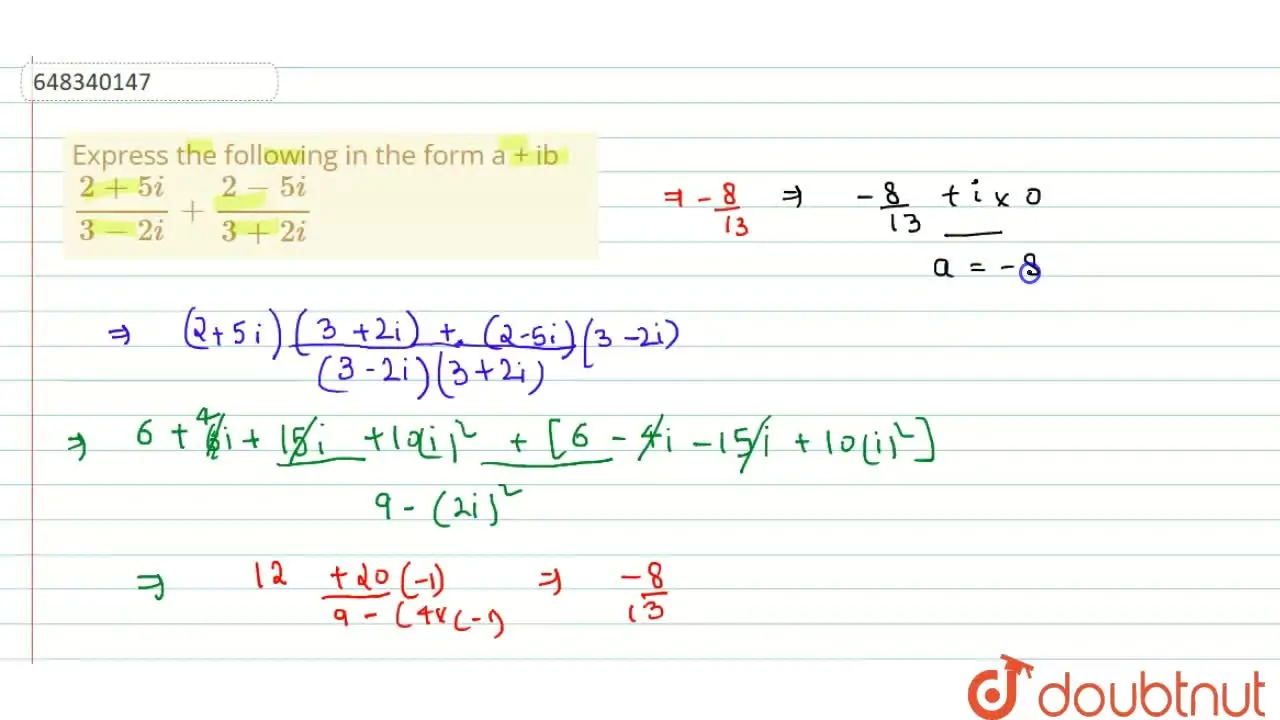 648340147
Express the following in the form a + ib
2 + 5i / 3 − 2i + 2 − 5i / 3 + 2i
⇒ - 8/13 ⇒ - 8/13 + i × 0
a = - 8
⇒ (2+5i)(3+2i) + (2-5i)(3-2i) / (3-2i)(3+2i)
⇒ 6 + 4i + 15i + 10(i)² + [6 - 4i - 15i + 10(i)²] / 9 - (2i)²
⇒ 12 + 20(-1) / 9 - (4×(-1) ⇒ -8/13
doubtnut